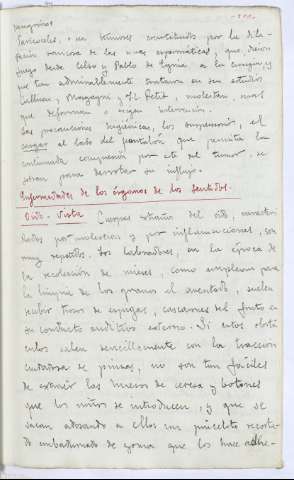 sanguíneos
Varicoceles, o un tumores constituidos por la dila-
tación varicosa de las venas espermáticas, que, dieron
juego desde Celso y Pablo de Egina, a la cirugía, y
que tan admirablemente contaron en sus estudios
Morgagni y J.L. Petit, molestan, más
que deforman o exigen intervención.
Las precauciones higiénicas, los suspensorios, el
cargar al lado del pantalón que permita la
continuada compresión por éste del tumor, se
sobran para derrotar su influjo.
Enfermedades de los órganos de los sentidos.
Oído - Vista Cuerpos extraños del oído, caracteri-
zados por molestias y por inflamaciones, son
muy repetidos. Los labradores, en la época de
la recolección de mieses, como emplean para
la limpia de los granos el aventado, suelen
recibir trozos de espigas, cascarones del fruto en
su conducto auditivo externo. Si estos obstá
culos salen sencillamente con la tracción
cuidadosa de pinzas, no son tan fáciles
de extraer los huesos de cereza y botones
que los niños se introducen, y que se
sacan adosando a ellos un pincelito recorta-
do embadurnado de goma que los hace adhe-